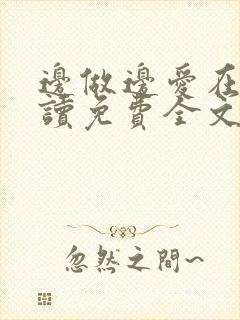 邊做邊愛在
讀免費全文
忽然之間~